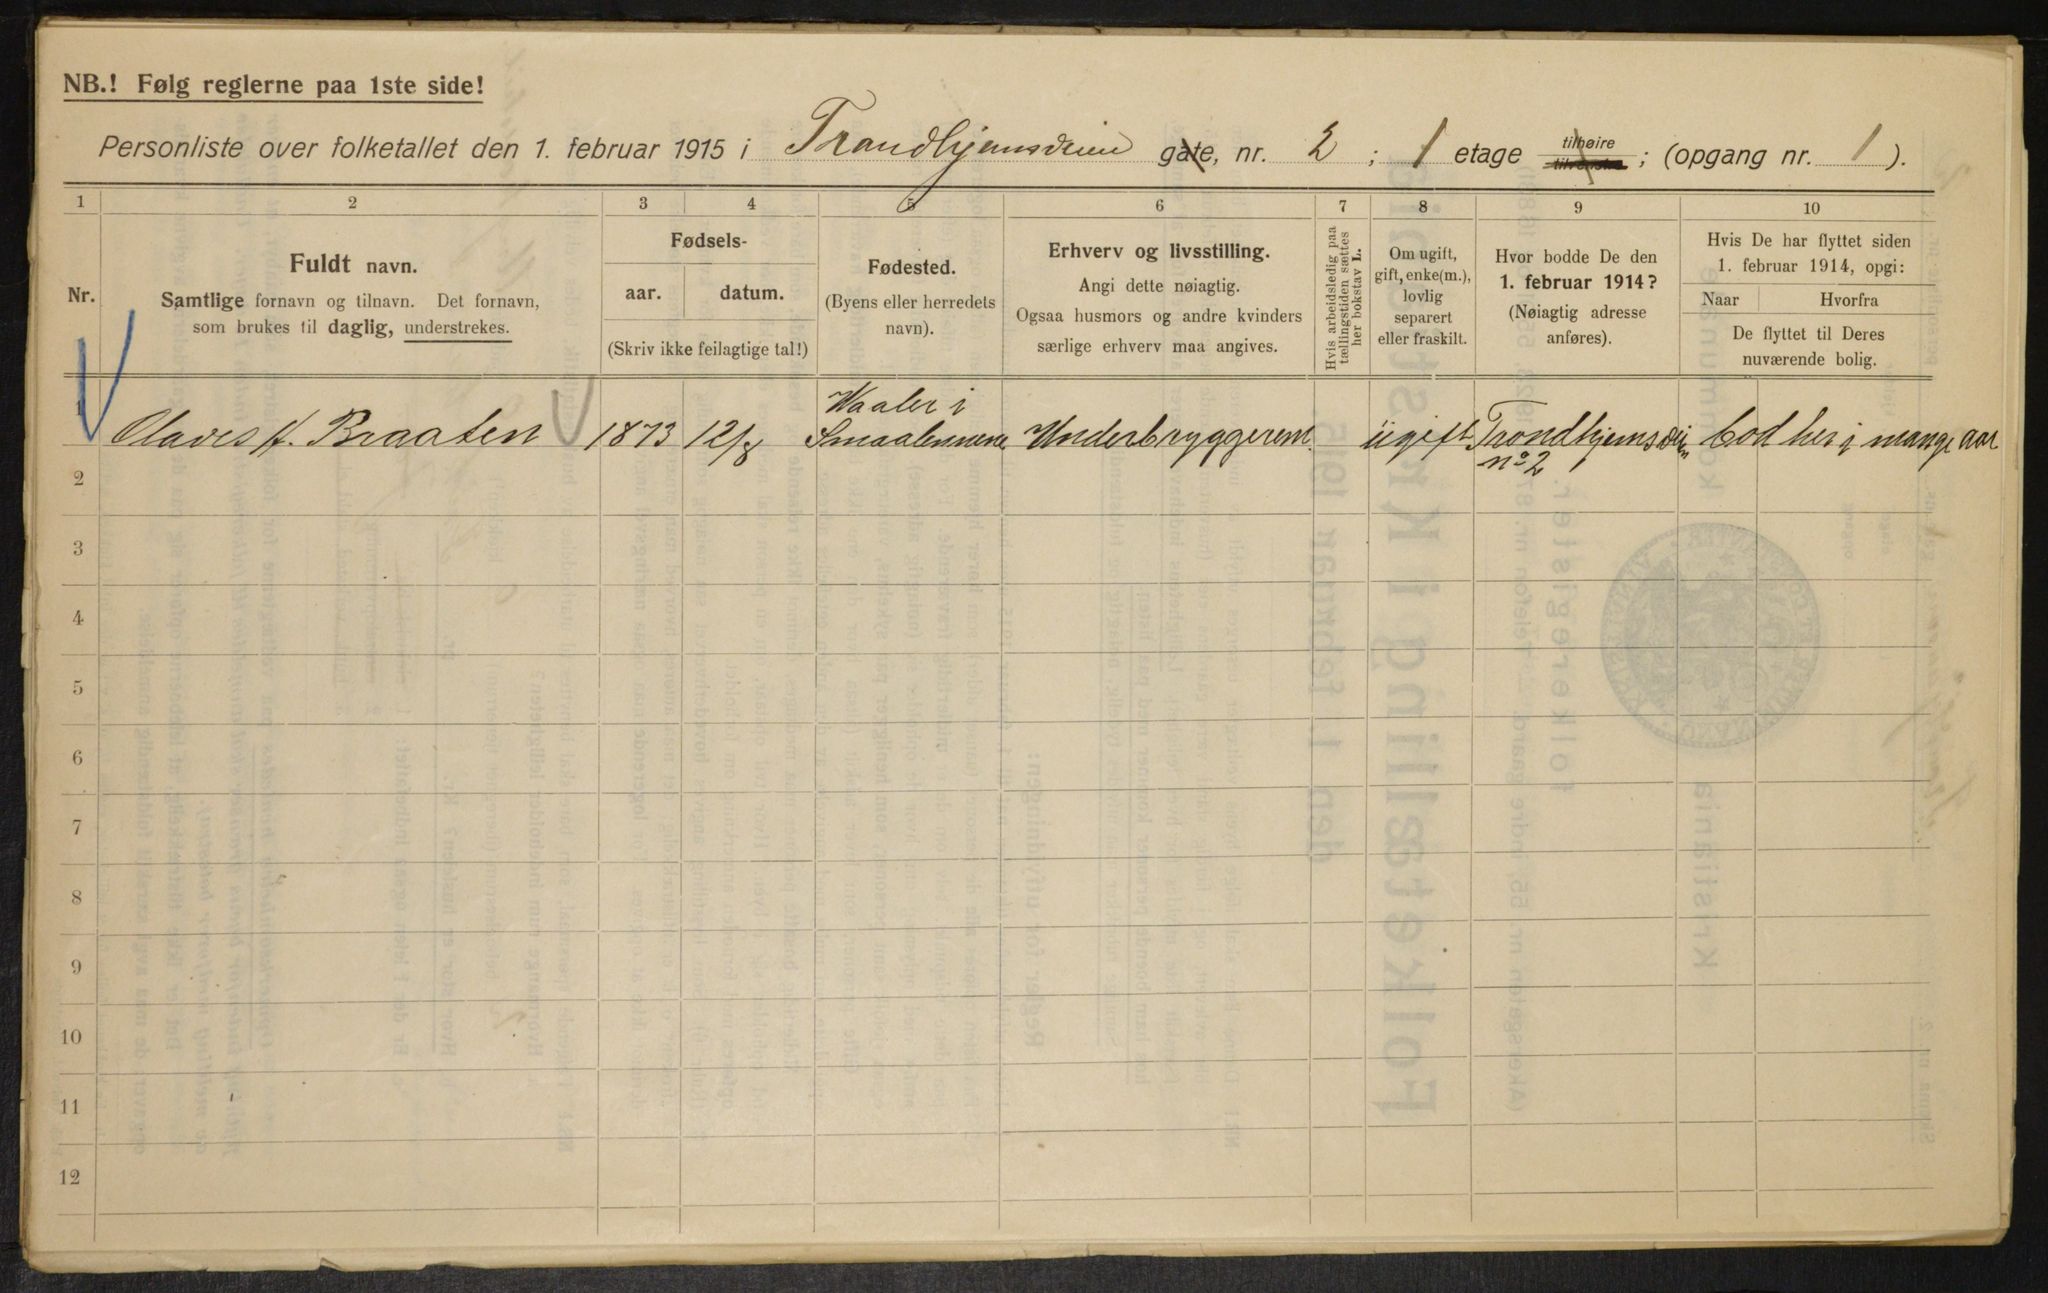 NB.! Følg reglerne paa 1ste side!
Personliste over folketallet den 1. februar 1915 i Trondhjemsveien gate, nr. 2 ; 1 etage tilhøire tilvenstre ; (opgang nr. 1 ).
1 2 3 4 5 6 7 8 9 10
Nr.
Fuldt navn.
Samtlige fornavn og tilnavn. Det fornavn,
som brukes til daglig, understrekes.
Fødsels-
aar. datum.
(Skriv ikke feilagtige tal!)
Fødested.
(Byens eller herredets
navn).
Erhverv og livsstilling.
Angi dette nøiagtig.
Ogsaa husmors og andre kvinders
særlige erhverv maa angives.
Hvis arbeidsledig paa
tællingstiden sættes
her bokstav L.
Om ugift,
gift, enke(m.),
lovlig
separert
eller fraskilt.
Hvor bodde De den
1. februar 1914?
(Nøiagtig adresse
anføres).
Hvis De har flyttet siden
1. februar 1914, opgi:
Naar Hvorfra
De flyttet til Deres
nuværende bolig.
Waaler i
Olaves H. Braaten 1873 12/8 Smaalennene Underbrygger ugift Trondhjemsvein bod her i mange aar
no 2
2
3
4
5
6
7
8
9
10
11
12